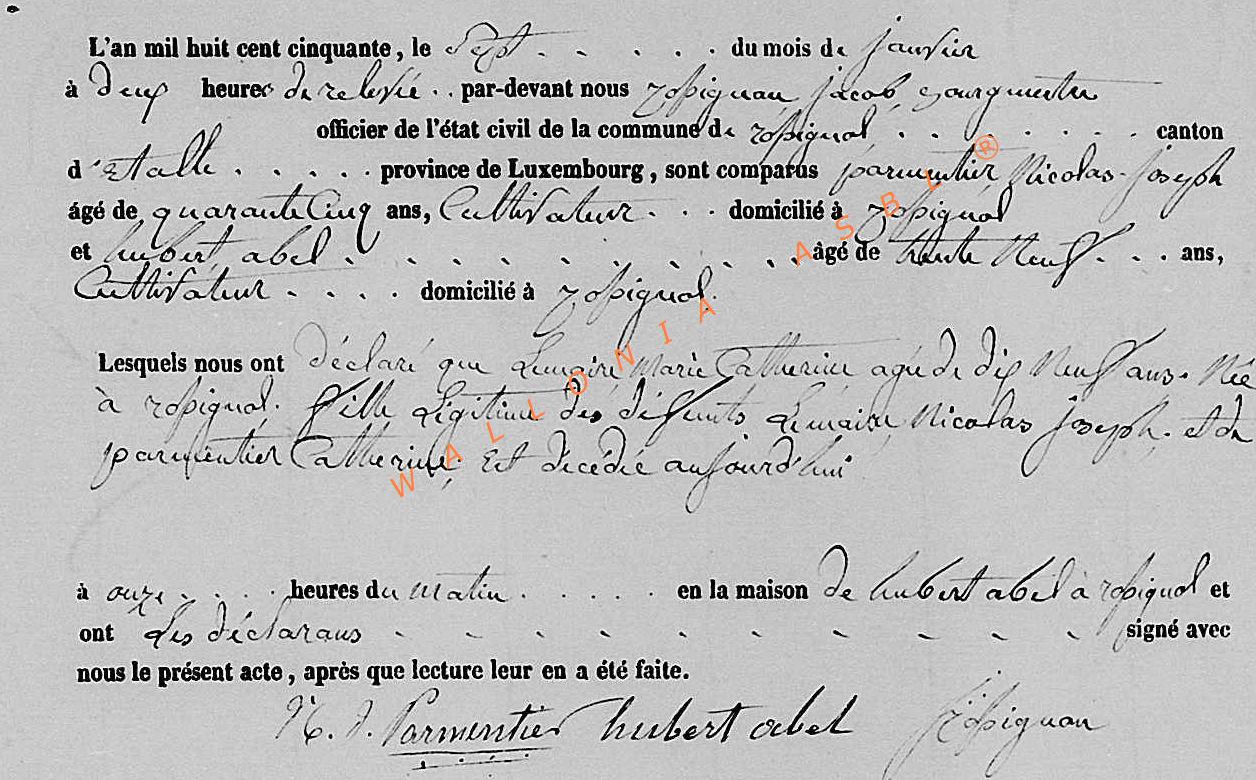 L'an mil huit cent cinquante, le Sept . . . . . du mois de janvier
à Deux heures de relevée . . par-devant nous rossignon, jacob, Bourgmestre
officier de l'état civil de la commune de rossignol . . . . . . . canton
d'Etalle . . . . . province de Luxembourg, sont comparus parmentier, Nicolas-joseph
âgé de quarante Cinq ans, Cultivateur . . . domicilié à rossignol
et hubert abel . . . . . . . . . . âgé de trente Neuf . . . ans,
Cultivateur . . . . domicilié à rossignol.
Lesquels nous ont déclaré que Lemaire Marie Catherine agée de dix Neuf ans. Née
à rossignol. fille Légitime des défunts Lemaire Nicolas joseph. et de
parmentier Catherine, Est décédée aujourd'hui
à onze . . . . heures du matin . . . . . en la maison de hubert abel à rossignol et
ont Les déclarans - - - - - - - - - signé avec
nous le présent acte, après que lecture leur en a été faite.
N. J. Parmentier hubert abel J Rossignon
WALLONIA ASBL ®